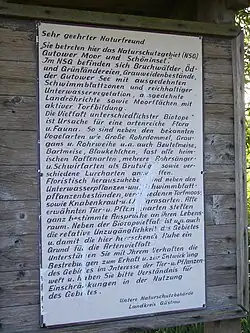 Sehr geehrter Naturfreund
Sie betreten hier das Naturschutzgebiet (NSG)
Gutower Moor und Schöninsel.
Im NSG befinden sich Bruchwälder, Öd-
und Grünländereien, Grauweidenbestände,
der Gutower See mit ausgedehnten
Schwimmblattzonen und reichhaltiger
Unterwasservegetation, ausgedehnte
Landröhrichte sowie Moorflächen mit
aktiver Torfbildung.
Die Vielfalt unterschiedlichster Biotope
ist Ursache für eine artenreiche Flora
u. Fauna. So sind neben den bekannten
Vogelarten wie Große Rohrdommel, Grau-
gans u. Rohrweihe u.a. auch Beutelmeise,
Bartmeise, Blaukehlchen, fast alle heimi-
schen Rallenarten, mehrere Rohrsänger-
u. Schwirlarten als Brutvögel sowie ver-
schiedene Lurcharten an
Floristisch herauszuheben sind neben den
Unterwasserpflanzen- und Schwimmblatt-
pflanzenbeständen, verschiedene Torfmoose
sowie Knabenkraut- u. arten. Alle
erwähnten Tier- u. Pflanzenarten stellen
ganz bestimmte Ansprüche an ihren Lebens-
raum. Neben der Biotopvielfalt ist u.a. auch
die relative Unzugänglichkeit des Gebietes
u. damit die hier herrschende Ruhe ein
Grund für die Artenvielfalt.
Unterstützen Sie mit Ihrem Verhalten die
Bestrebungen zum Erhalt u. zur Entwicklung
des Gebietes im Interesse der Tier- u. Pflanzen-
welt u. haben Sie bitte Verständnis für
Einschränkungen in der Nutzung
des Gebietes.
Untere Naturschutzbehörde
Landkreis Güstrow